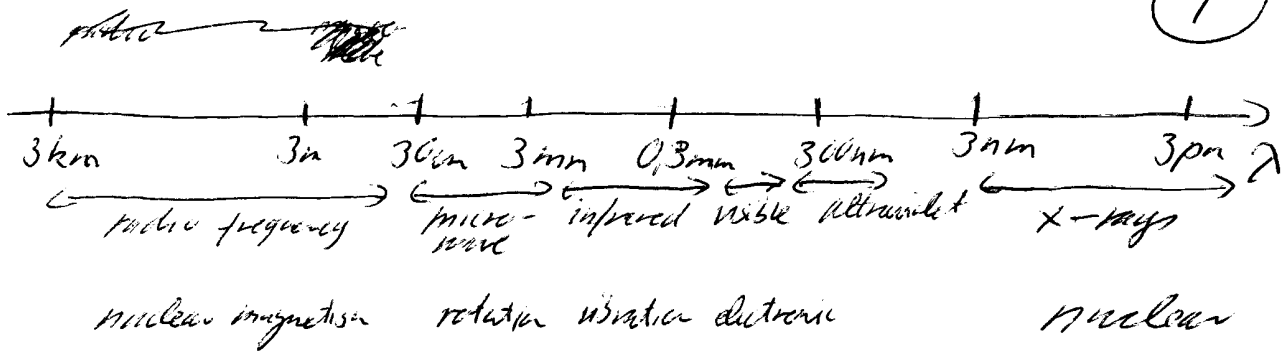 1
3km 3m 30cm 3mm 0,3mm 300nm 3nm 3pm λ
radio frequency micro- infrared visible ultraviolet x-rays
wave
nuclear magnetism rotation vibration electronic nuclear